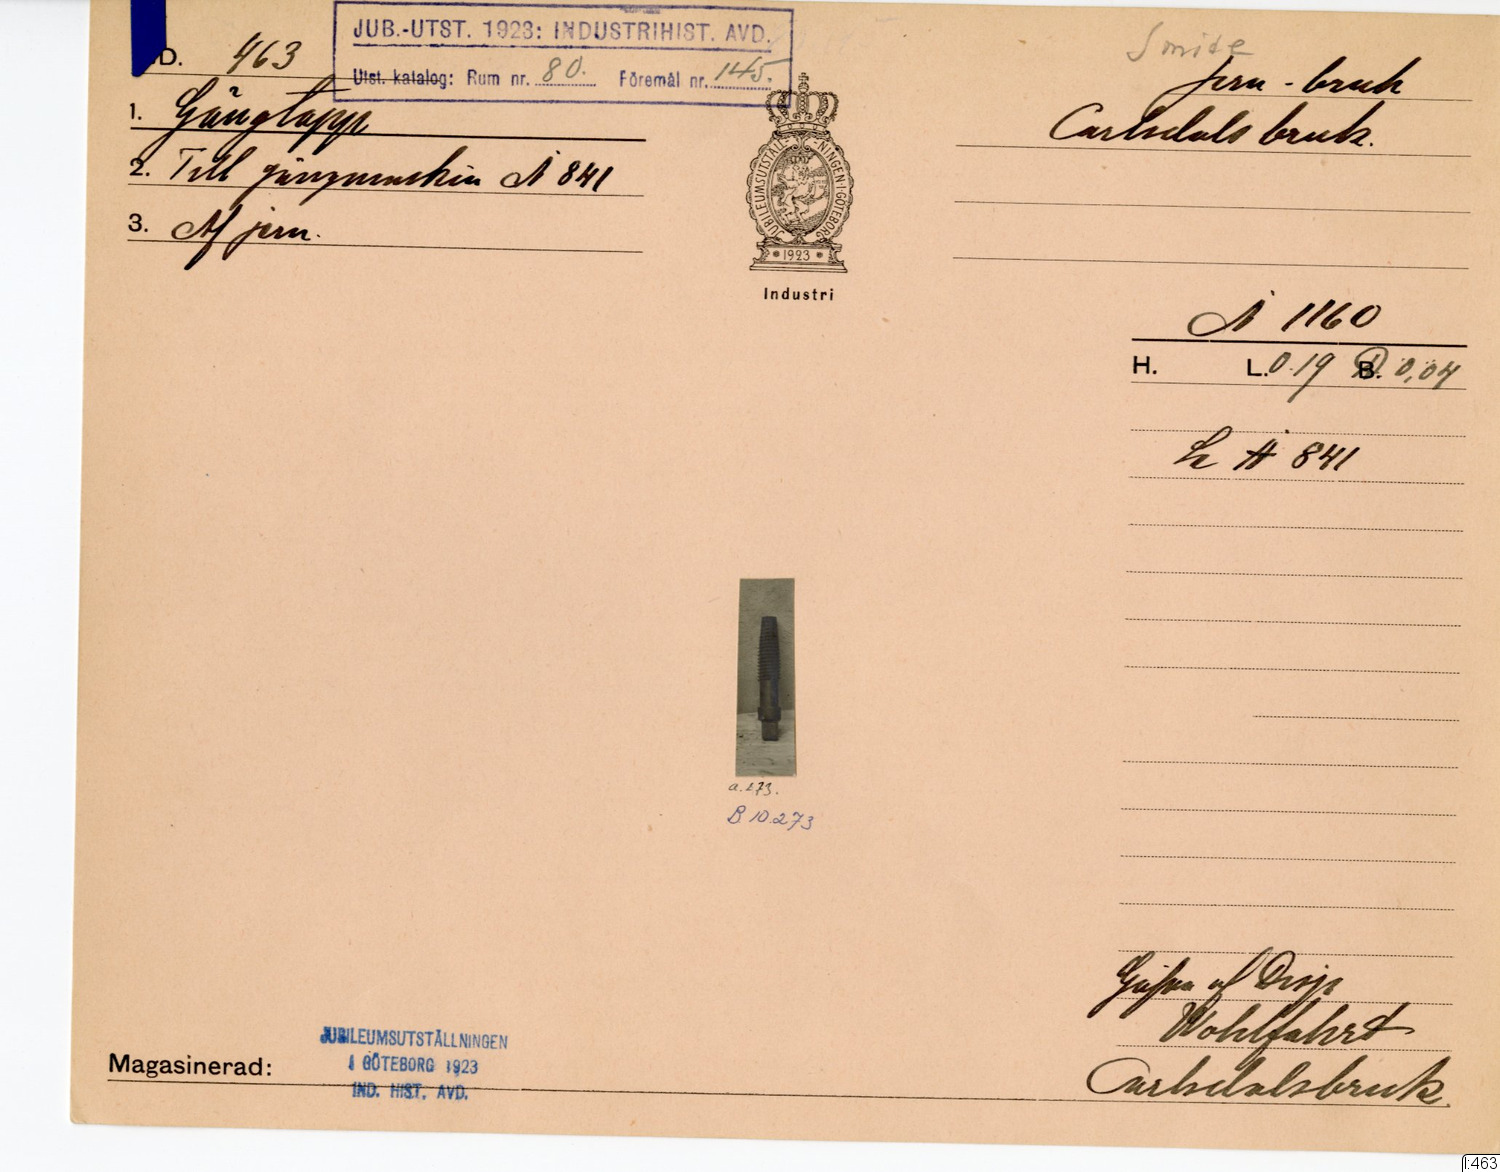 JUB.-UTST. 1923: INDUSTRIHIST. AVD.
Utst. katalog: Rum nr. 80. Föremål nr. 145.
D. 463
1. Gängtapp
2. Till gängmaskin N 841
3. Af jern.
JUBILEUMSUTSTÄLLNINGEN·I·GÖTEBORG
1923
Industri
Smide
Jern-bruk
Carlsdals bruk.
N 1160
H. L. 0.19 B. D 0,04
841
a.273.
B 10.273
Gåfva af Disp.
Wohlfahrt
Carlsdalsbruk.
Magasinerad:
JUBILEUMSUTSTÄLLNINGEN
I GÖTEBORG 1923
IND. HIST. AVD.
I:463